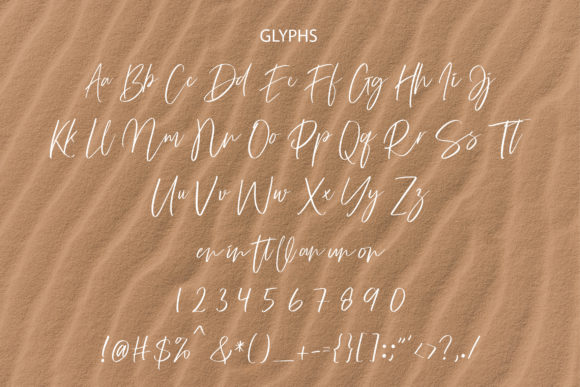 GLYPHS
Aa Bb Cc Dd Ee Ff Gg Hh Ii Jj
Kk Ll Mm Nn Oo Pp Qq Rr Ss Tt
Uu Vv Ww Xx Yy Zz
en in tt ll an un on
1 2 3 4 5 6 7 8 9 0
!@#$%^&*()_+-={}[]:;"'<>?,./